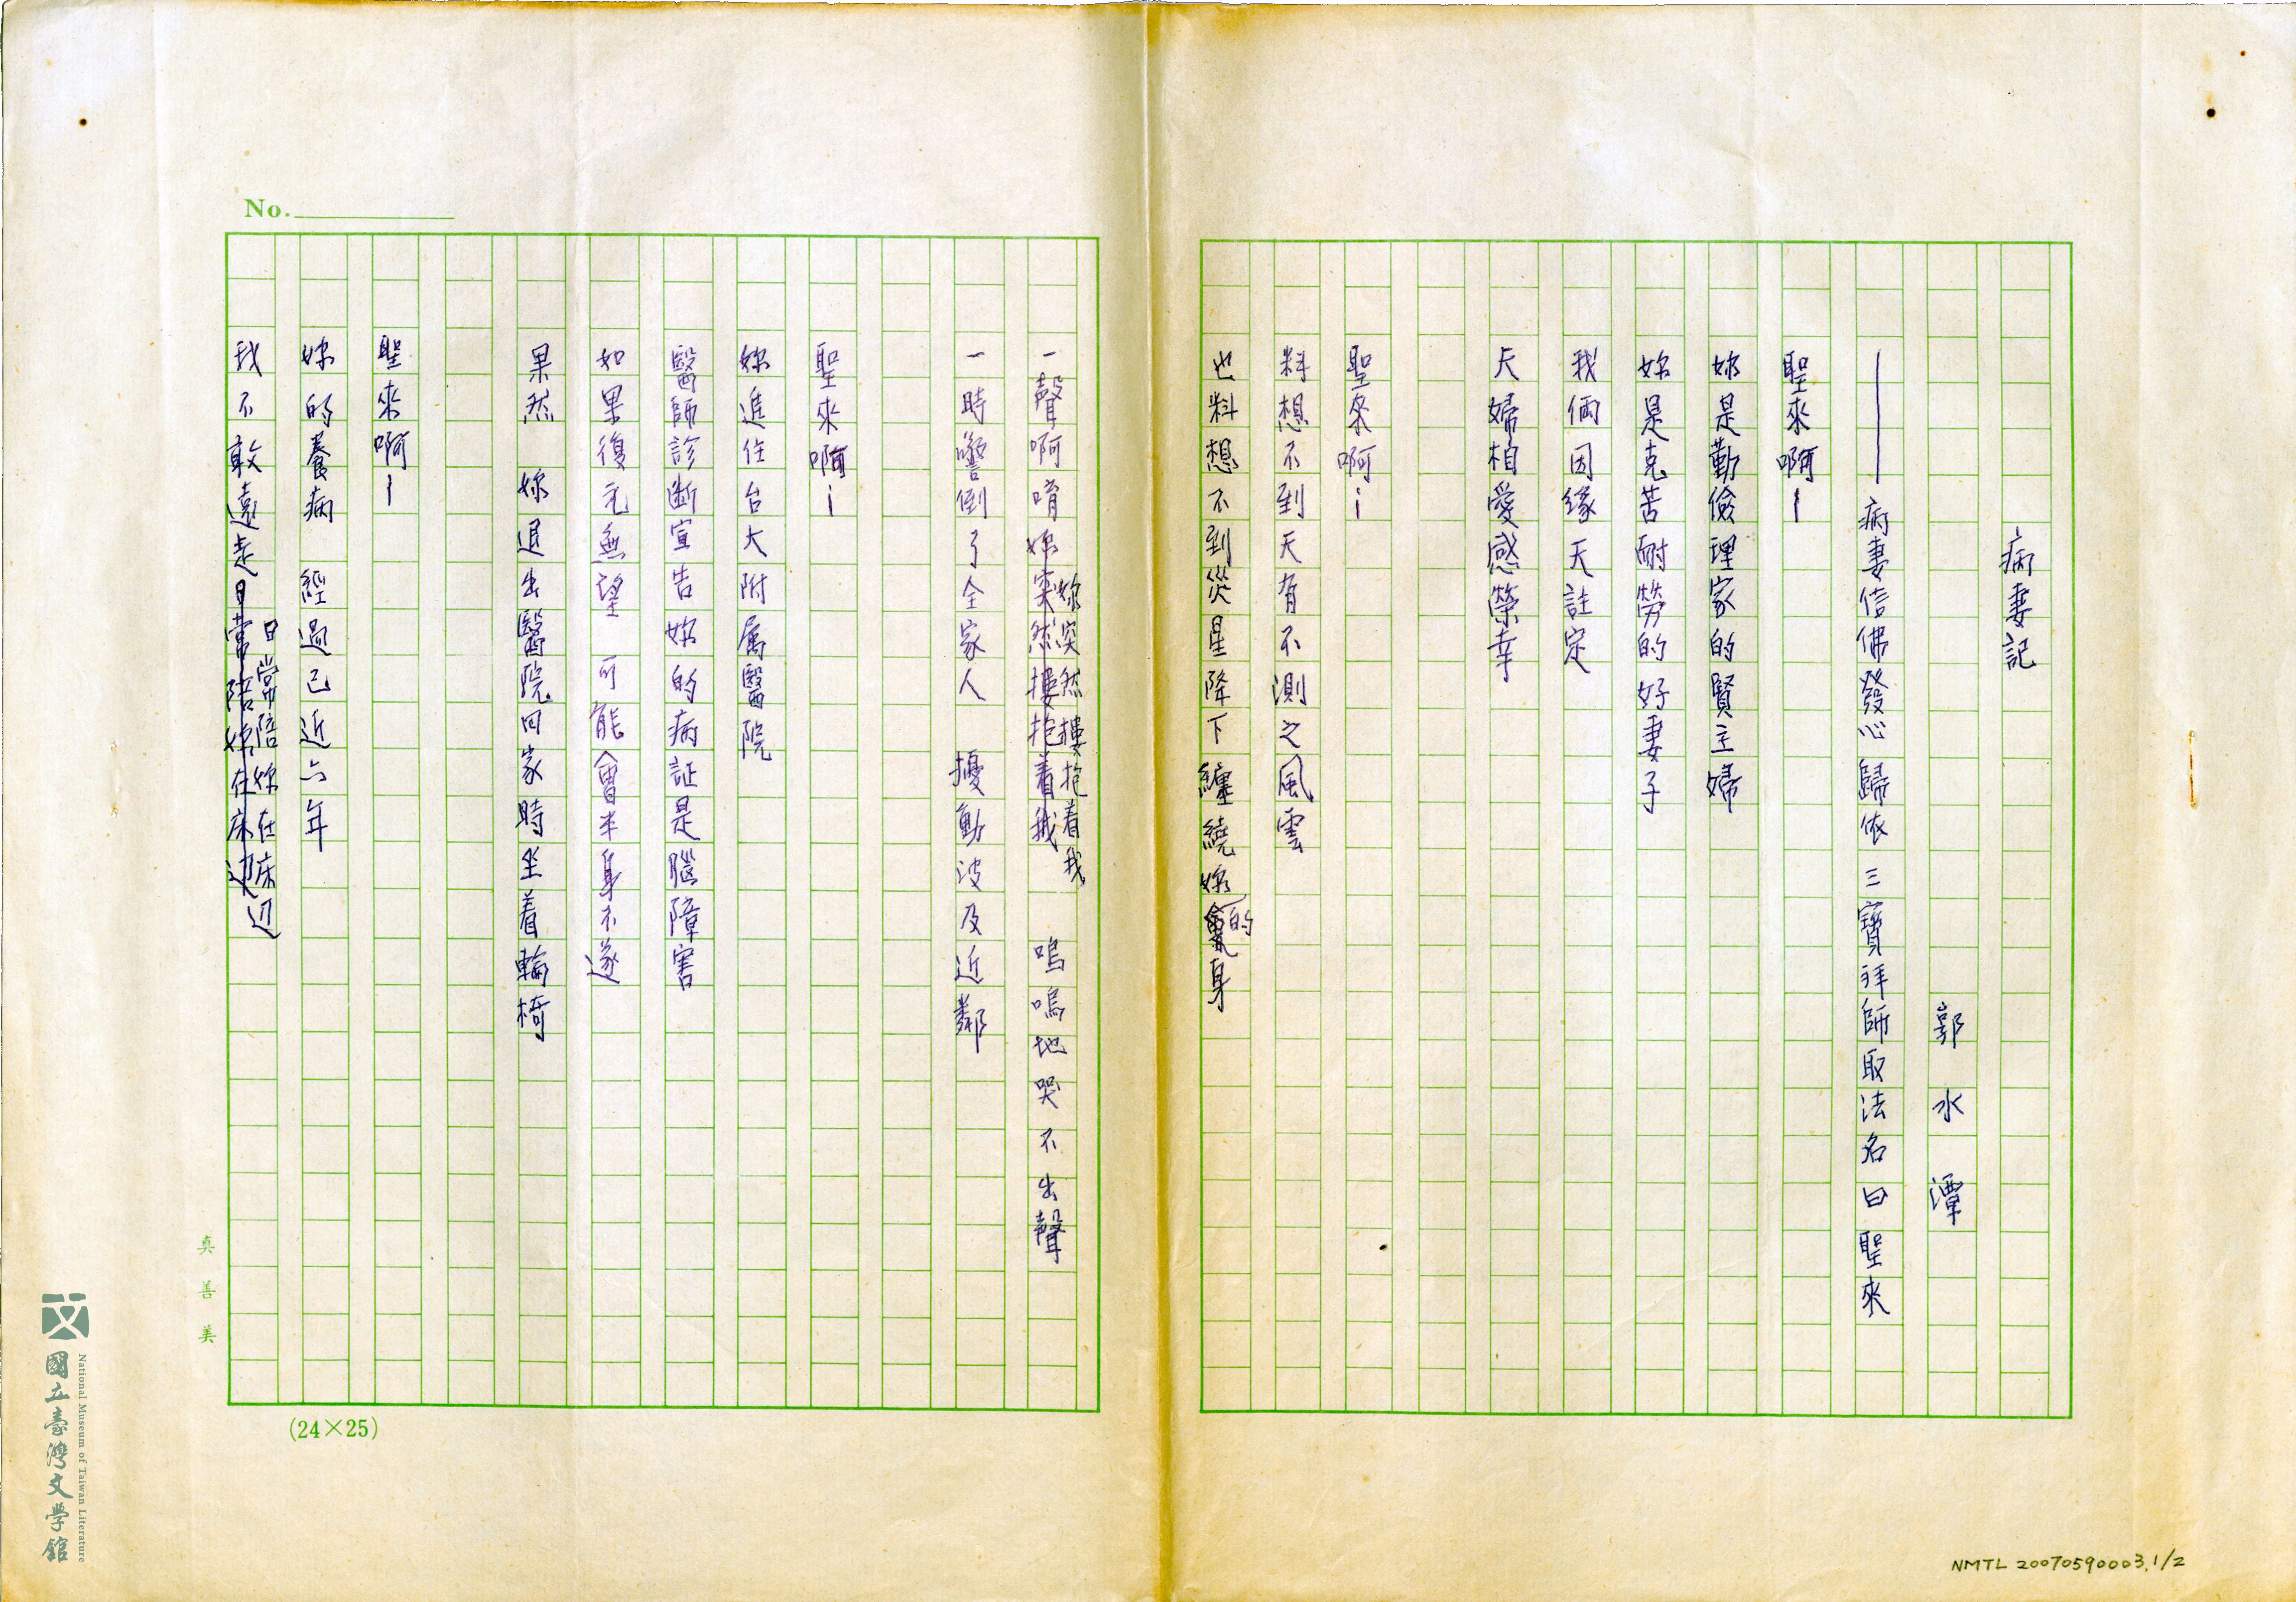 病妻記
郭水潭
——病妻信佛發心歸依三寶拜師取法名曰聖來
聖來啊—
妳是勤儉理家的賢主婦
妳是克苦耐勞的好妻子
我倆因緣天註定
夫婦相愛感榮幸
聖來啊—
料想不到天有不測之風雲
也料想不到災星降下纏繞妳的身
一聲啊唷妳突然摟抱着我 嗚嗚地哭不出聲
妳突然摟抱着我
一時驚倒了全家人 擾動波及近鄰
聖來啊—
妳進住台大附属醫院
醫師診斷宣告妳的病証是腦障害
如果復元無望 可能會半身不遂
果然 妳退出醫院回家時坐着輪椅
聖來啊—
妳的養病 經過已近六年
我不敢遠走日常陪妳在床边
日常陪妳在床边
No.
(24×25)
真善美
國立臺灣文學館
National Museum of Taiwan Literature
NMTL 20070590003.1/2